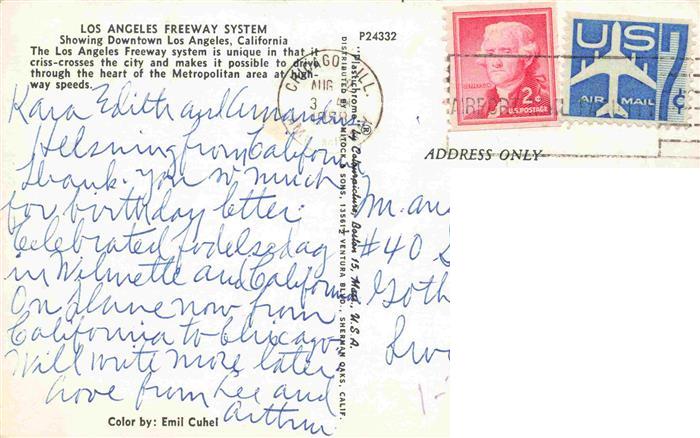 LOS ANGELES FREEWAY SYSTEM
Showing Downtown Los Angeles, California
The Los Angeles Freeway system is unique in that it
criss-crosses the city and makes it possible to drive
through the heart of the Metropolitan area at high-
way speeds.
P24332
Kara Edith and Amandus
Helsning from California
Thank you so much
for birthday letter.
Celebrated fodelsedag
in Wilmette and California
On plane now from
California to Chicago
Will write more later
Love from Lee and
Arthur
Color by: Emil Cuhel
"Plastichrome" by Colourpicture, Boston 15, Mass., U.S.A.
DISTRIBUTED BY MITOCK & SONS, 13561½ VENTURA BLVD., SHERMAN OAKS, CALIF.
CHICAGO, ILL.
AUG
3
2¢
U.S. POSTAGE
US
AIR MAIL
7¢
ADDRESS ONLY
#40
Goth